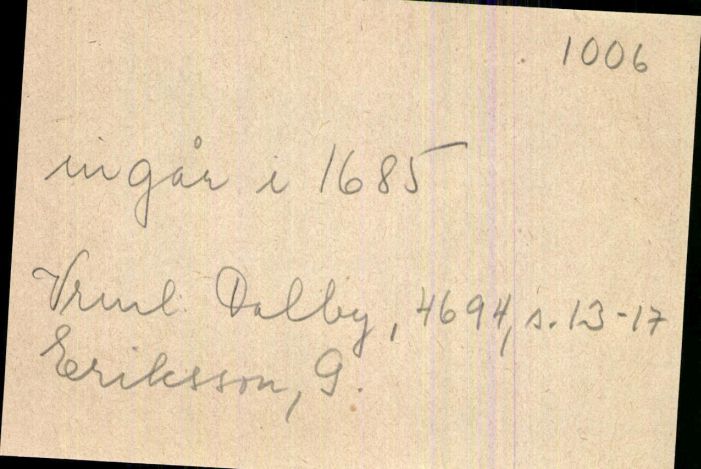 1006
ingår i 1685
Vrml. Dalby, 4694, s. 13-17
Eriksson, G.